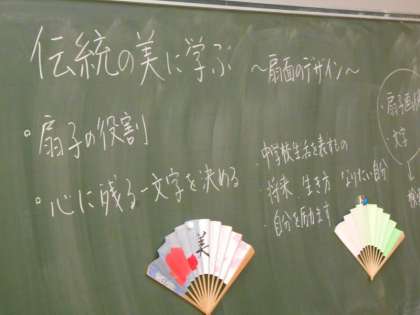 伝統の美に学ぶ ～扇面のデザイン～
・扇子の役割
・心に残る一文字を決める
中学校生活を表すもの
・将来 生き方 なりたい自分
・自分を励ます
美
文字